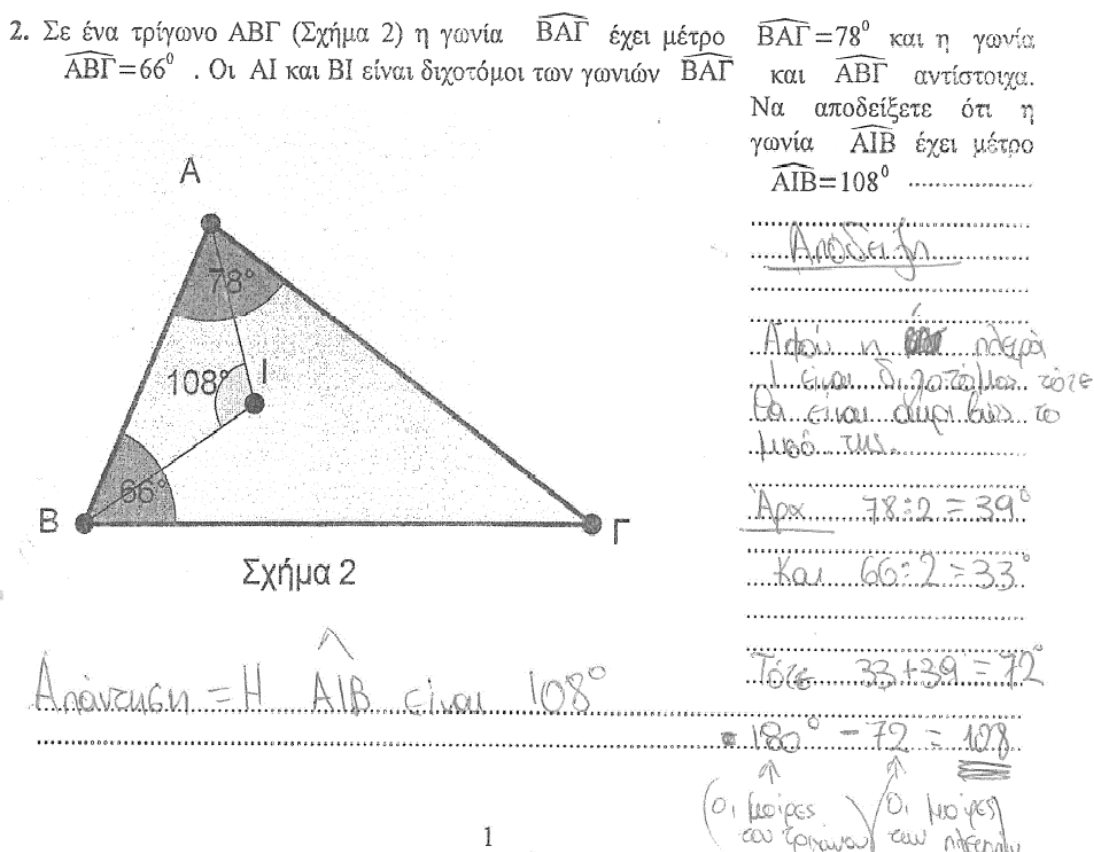 2. Σε ένα τρίγωνο ΑΒΓ (Σχήμα 2) η γωνία ΒΑΓ έχει μέτρο ΒΑΓ=78⁰ και η γωνία
ΑΒΓ=66⁰ . Οι ΑΙ και ΒΙ είναι διχοτόμοι των γωνιών ΒΑΓ και ΑΒΓ αντίστοιχα.
Να αποδείξετε ότι η
γωνία ΑΙΒ έχει μέτρο
ΑΙΒ=108⁰
Απόδειξη
Αφού η πλευρά
Ι είναι διχοτόμος τότε
θα είναι ακριβώς το
μισό της.
Άρα 78÷2=39°
Και 66÷2=33°
Τότε 33+39=72°
180° - 72 = 108
(Οι μοίρες του τριγώνου)
(Οι μοίρες των πλευρών
Α
78°
108°
Ι
66°
Β
Γ
Σχήμα 2
Απάντηση = Η ΑΙΒ είναι 108°
1